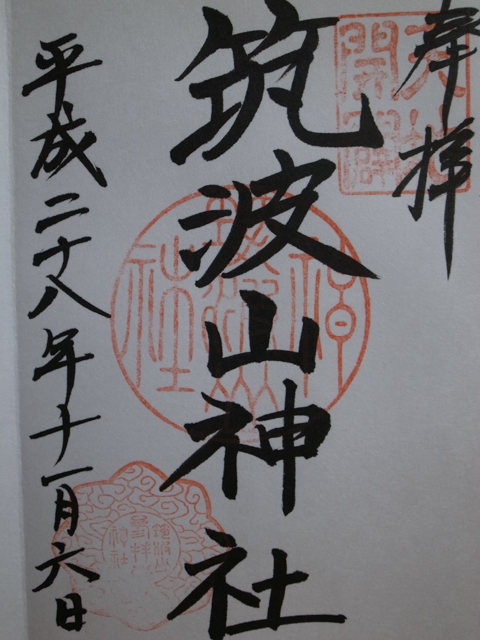 奉拝
天地開闢
筑波山神社
筑波山神社
平成二十八年十一月六日